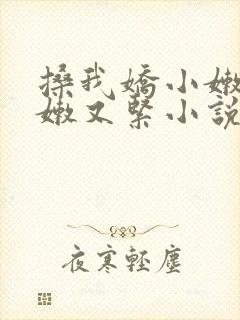 搡我嬌小嫩
嫩又緊小說
夜寒輕塵